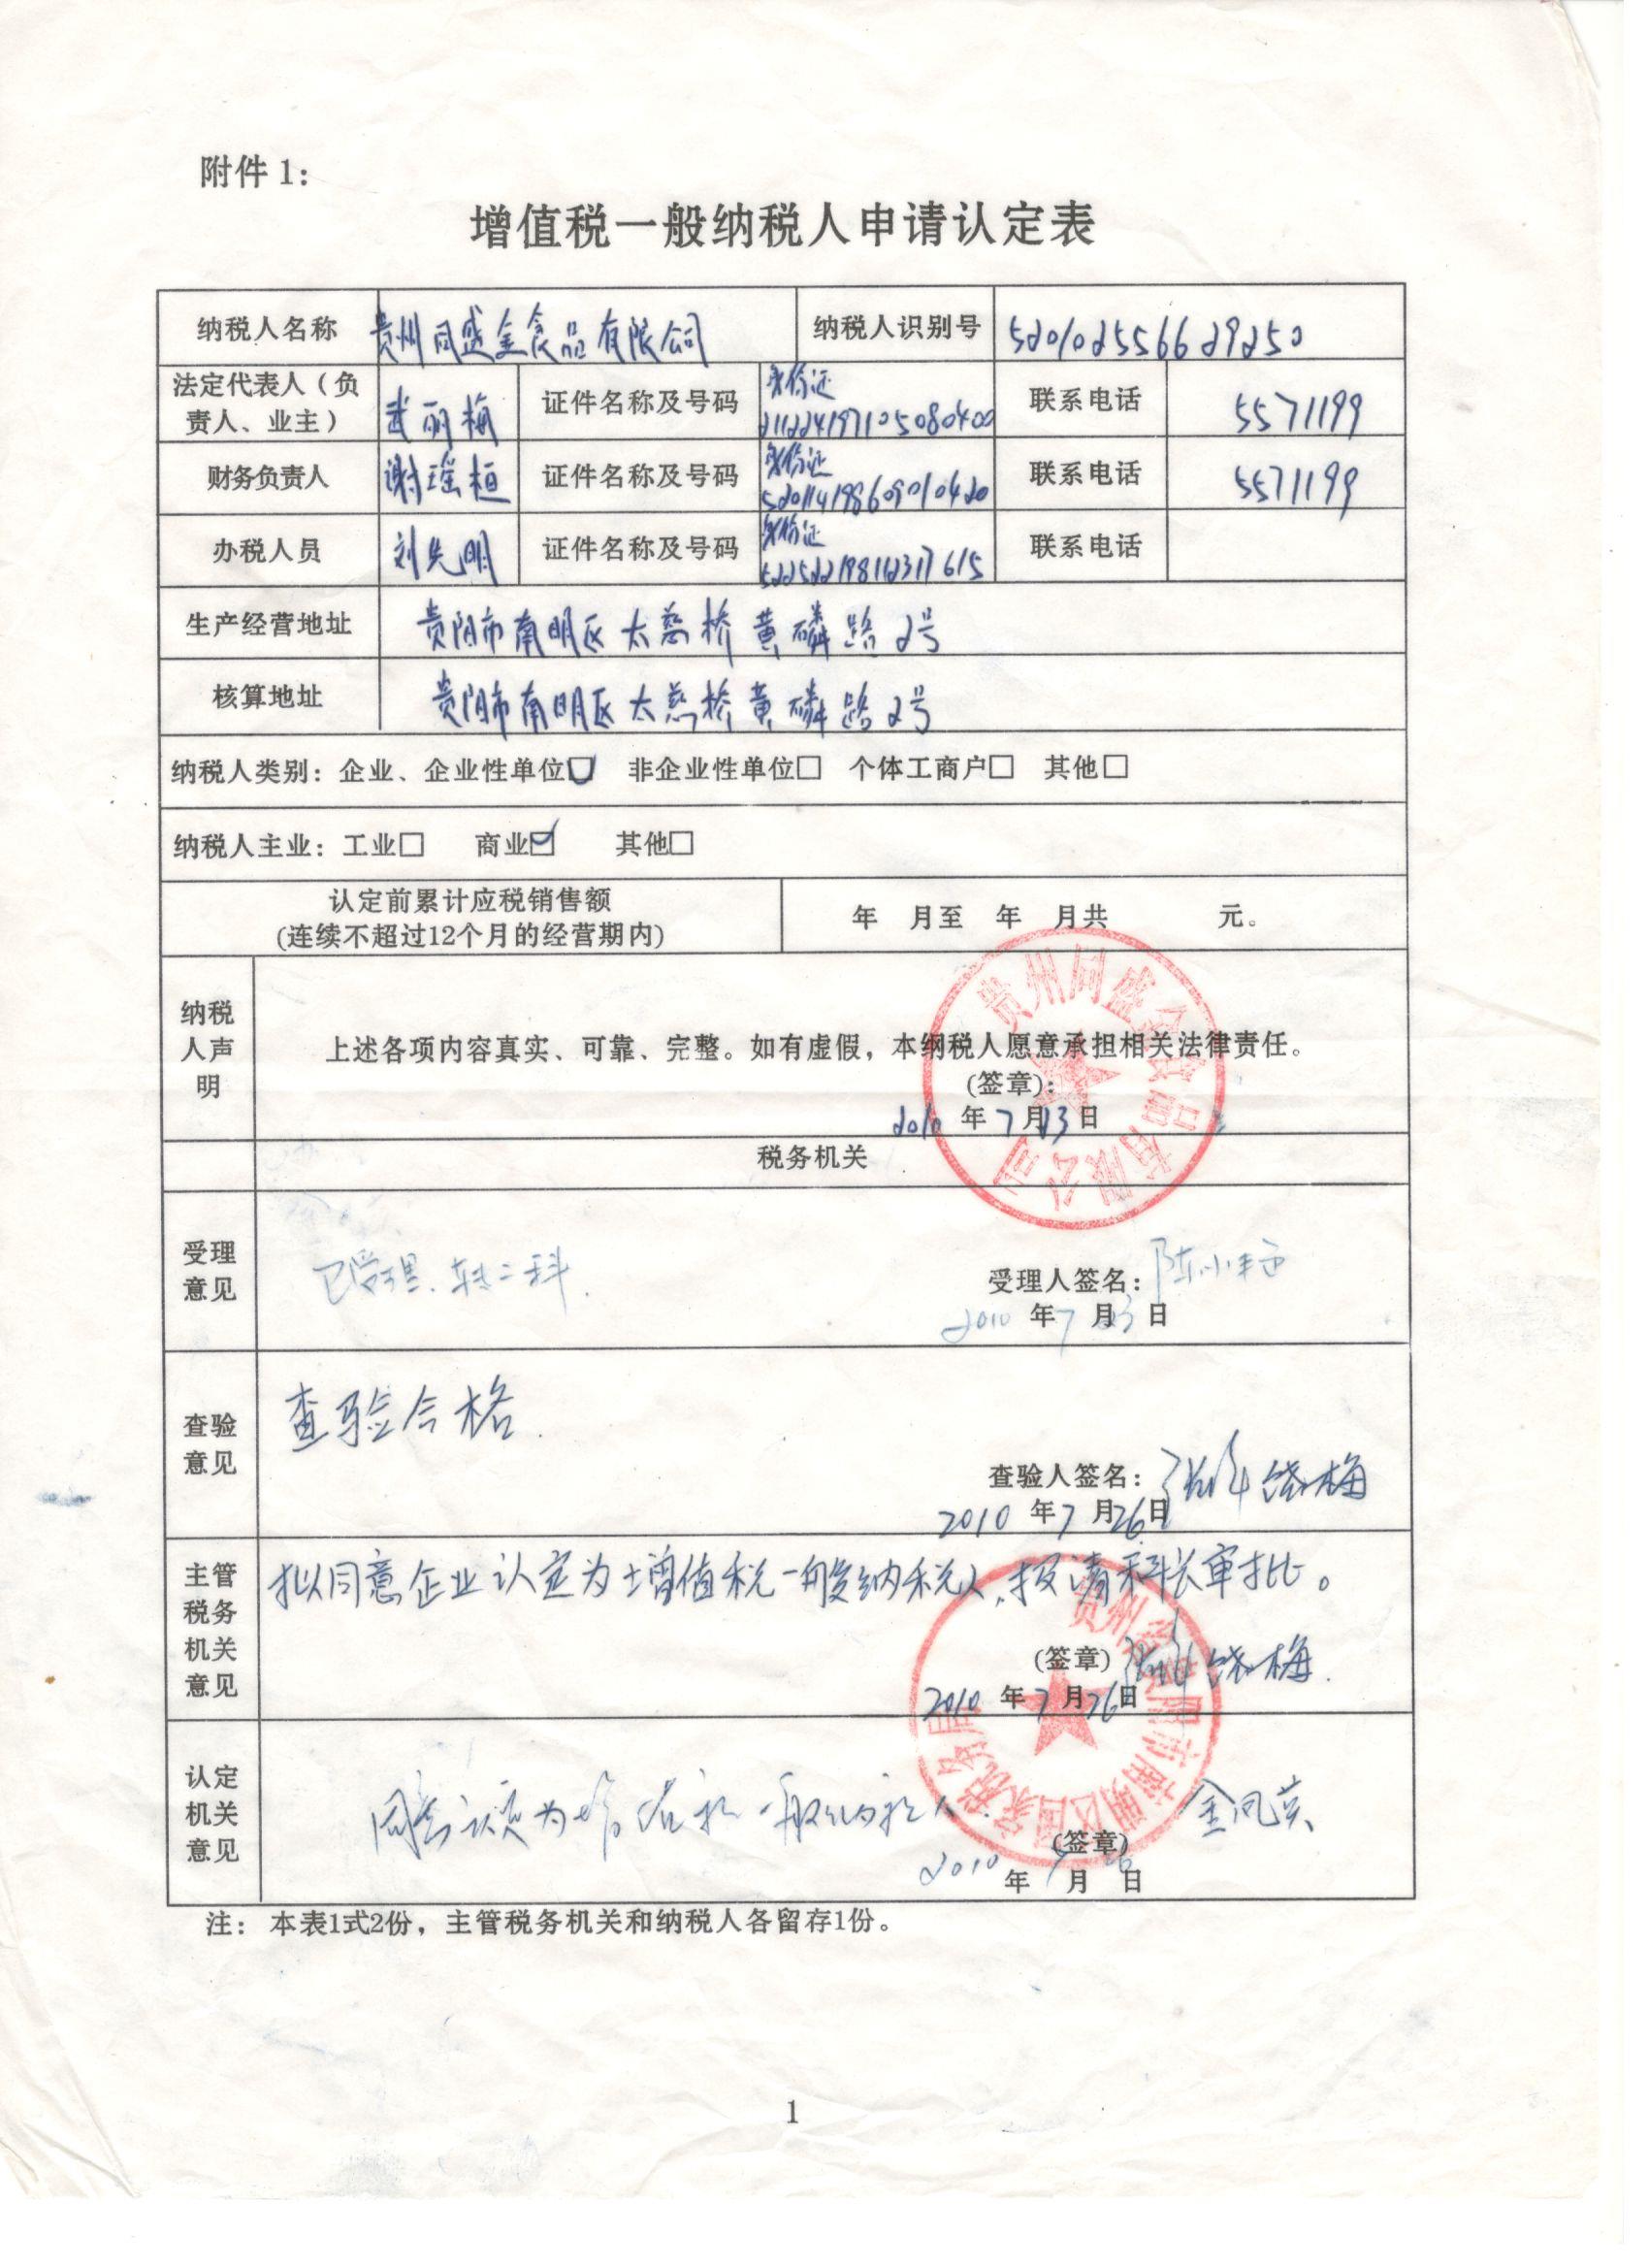 附件 1:
增值税一般纳税人申请认定表
纳税人名称 贵州同盛金食品有限公司 纳税人识别号 520102556629250
法定代表人（负责人、业主） 武丽梅 证件名称及号码 身份证 211224197105080400 联系电话 5571199
财务负责人 谢瑶桓 证件名称及号码 身份证 520114198609010420 联系电话 5571199
办税人员 刘先明 证件名称及号码 身份证 联系电话
生产经营地址 贵阳市南明区太慈桥黄磷路2号
核算地址 贵阳市南明区太慈桥黄磷路2号
纳税人类别：企业、企业性单位☑ 非企业性单位□ 个体工商户□ 其他□
纳税人主业：工业□ 商业☑ 其他□
认定前累计应税销售额
(连续不超过12个月的经营期内) 年 月至 年 月共 元。
纳税人声明
上述各项内容真实、可靠、完整。如有虚假，本纳税人愿意承担相关法律责任。
(签章)：
2010 年 7 月 23 日
贵州同盛金食品有限公司
税务机关
受理意见 已受理、转二科.
受理人签名：
2010 年 7 月 23 日
查验意见 查验合格.
查验人签名： 饶梅
2010 年 7 月 26 日
主管税务机关意见 拟同意企业认定为增值税一般纳税人,报请科长审批。
(签章) 饶梅.
2010 年 7 月 26 日
贵州省贵阳市南明区国家税务局
认定机关意见 同意认定为增值税一般纳税人.
(签章) 金凤英
2010 年 7 月 26 日
注：本表1式2份，主管税务机关和纳税人各留存1份。
1